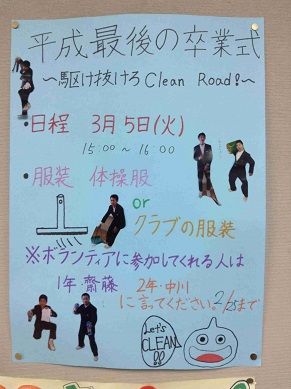 平成最後の卒業式
〜駆け抜けろ Clean Road!〜
・日程 3月5日(火)
15:00 〜 16:00
・服装 体操服
or
クラブの服装
※ボランティアに参加してくれる人は
1年・齋藤 2年・中川
に言ってください。2/25まで
Let's
CLEAN
!!